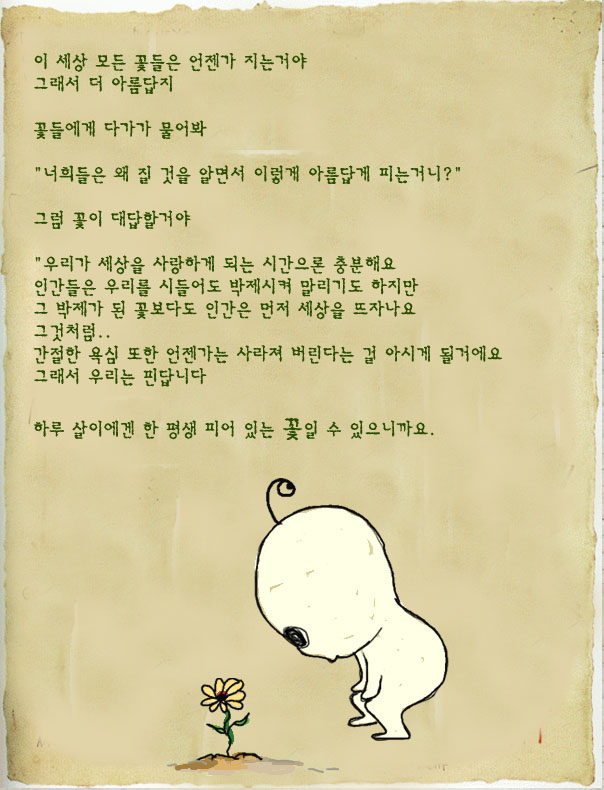 이 세상 모든 꽃들은 언젠가 지는거야
그래서 더 아름답지
꽃들에게 다가가 물어봐
"너희들은 왜 질 것을 알면서 이렇게 아름답게 피는거니?"
그럼 꽃이 대답할거야
"우리가 세상을 사랑하게 되는 시간으론 충분해요
인간들은 우리를 시들어도 박제시켜 말리기도 하지만
그 박제가 된 꽃보다도 인간은 먼저 세상을 뜨자나요
그것처럼..
간절한 욕심 또한 언젠가는 사라져 버린다는 걸 아시게 될거에요
그래서 우리는 핀답니다
하루 살이에겐 한 평생 피어 있는 꽃일 수 있으니까요.